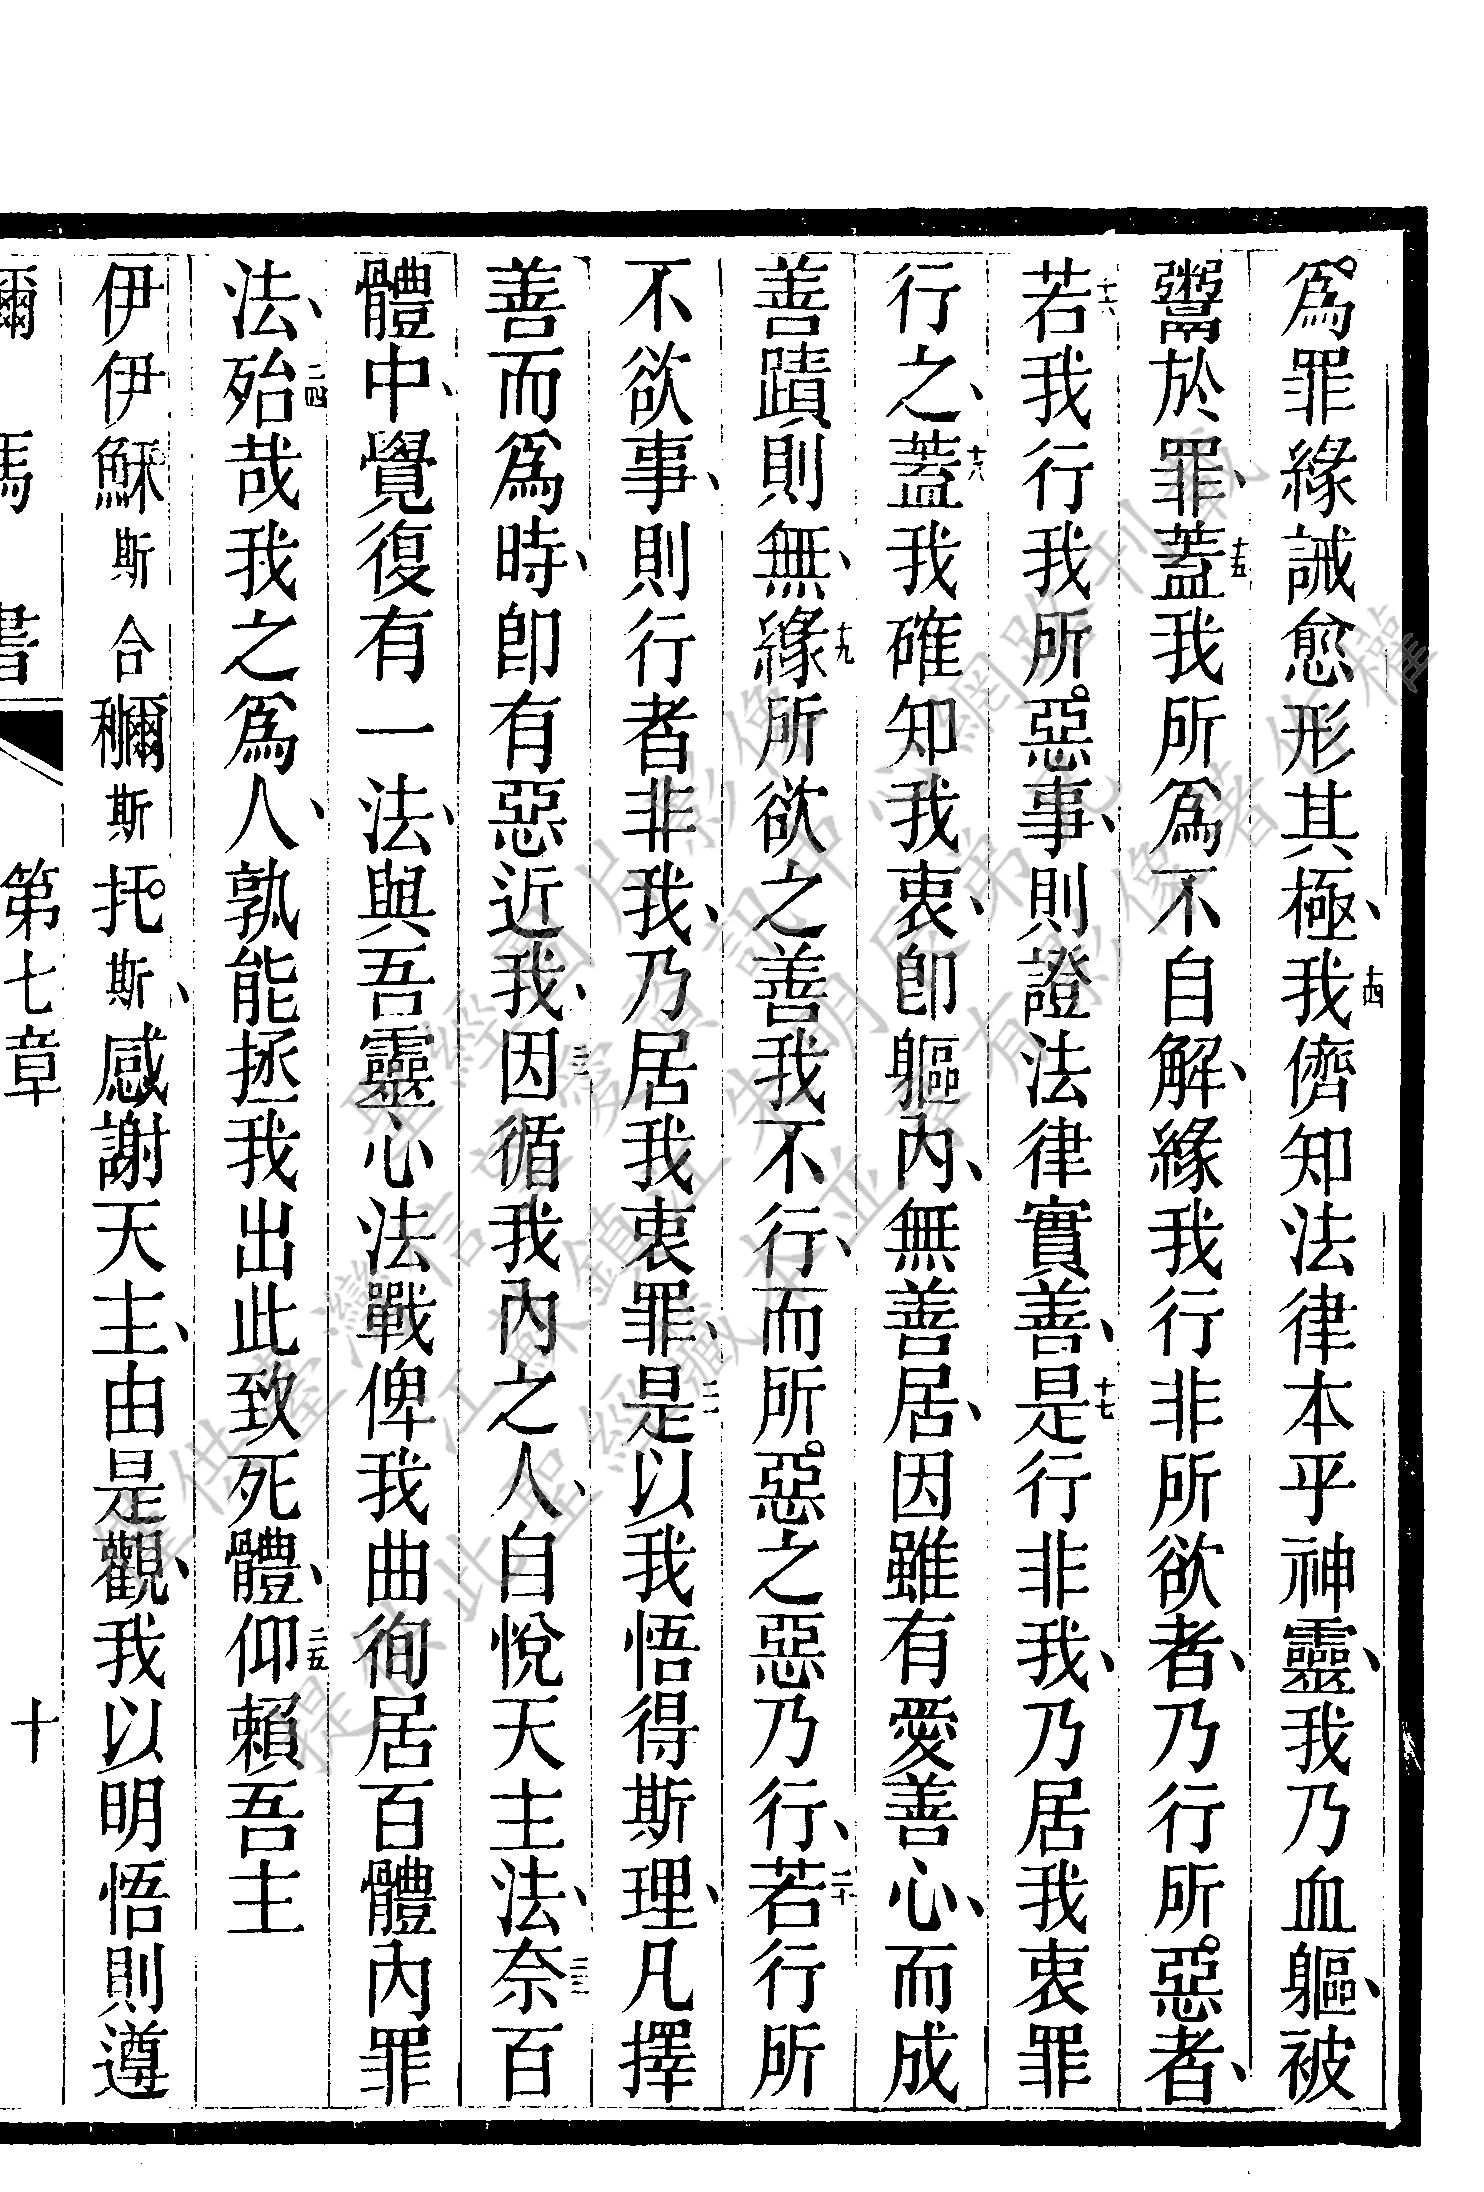 爲罪緣誡愈形其極、十四我儕知法律本乎神靈、我乃血軀、被
鬻於罪、十五蓋我所爲不自解、緣我行非所欲者、乃行所惡者、
十六若我行我所惡事、則證法律實善、十七是行非我、乃居我衷罪
行之、十八蓋我確知我衷、卽軀內、無善居、因雖有愛善心、而成
善蹟則無、十九緣所欲之善我不行、而所惡之惡乃行、二十若行所
不欲事、則行者非我、乃居我衷罪、二一是以我悟得斯理、凡擇
善而爲時、卽有惡近我、二二因循我內之人、自悅天主法、二三奈百
體中、覺復有一法、與吾靈心法戰俾我曲徇居百體內罪
法、二四殆哉我之爲人、孰能拯我出此致死體、二五仰賴吾主
伊伊穌斯合穪斯托斯、感謝天主、由是觀、我以明悟則遵
第七章
十